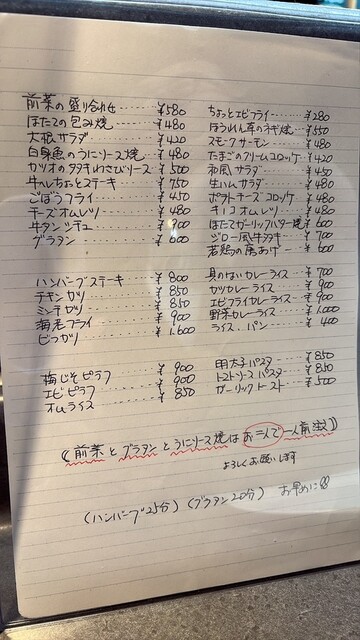 前菜の盛り合わせ……¥580
ほたての包み焼……¥480
大根サラダ……¥420
白身魚のうにソース焼…¥480
カツオのタタキわさびソース…¥500
牛ヘレちょっとステーキ…¥750
ごぼうフライ……¥450
チーズオムレツ……¥480
牛タンシチュー……¥900
グラタン……¥600
ハンバーグステーキ……¥800
チキンカツ……¥850
ミンチカツ……¥850
海老フライ……¥900
ビフカツ……¥1.600
梅じそピラフ……¥900
エビピラフ……¥900
オムライス……¥850
ちょっとエビフライ……¥280
ほうれん草のネギ焼…¥550
スモークサーモン……¥480
たまごのクリームコロッケ…¥420
和風サラダ……¥450
生ハムサラダ……¥480
ポテトチーズコロッケ…¥480
キノコオムレツ……¥480
ほたてガーリックバター焼…¥600
ジロー風牛タタキ……¥700
若鶏の唐あげ……¥600
具のないカレーライス……¥700
カツカレーライス……¥900
エビフライカレーライス…¥900
野菜カレーライス……¥1.000
ライス、パン……¥400
明太子パスタ……¥850
トマトソースパスタ……¥850
ガーリックトースト……¥500
((前菜とグラタンとうにソース焼はお二人で一人前注文))
よろしくお願いします
(ハンバーグ25分)(グラタン20分) お早めに